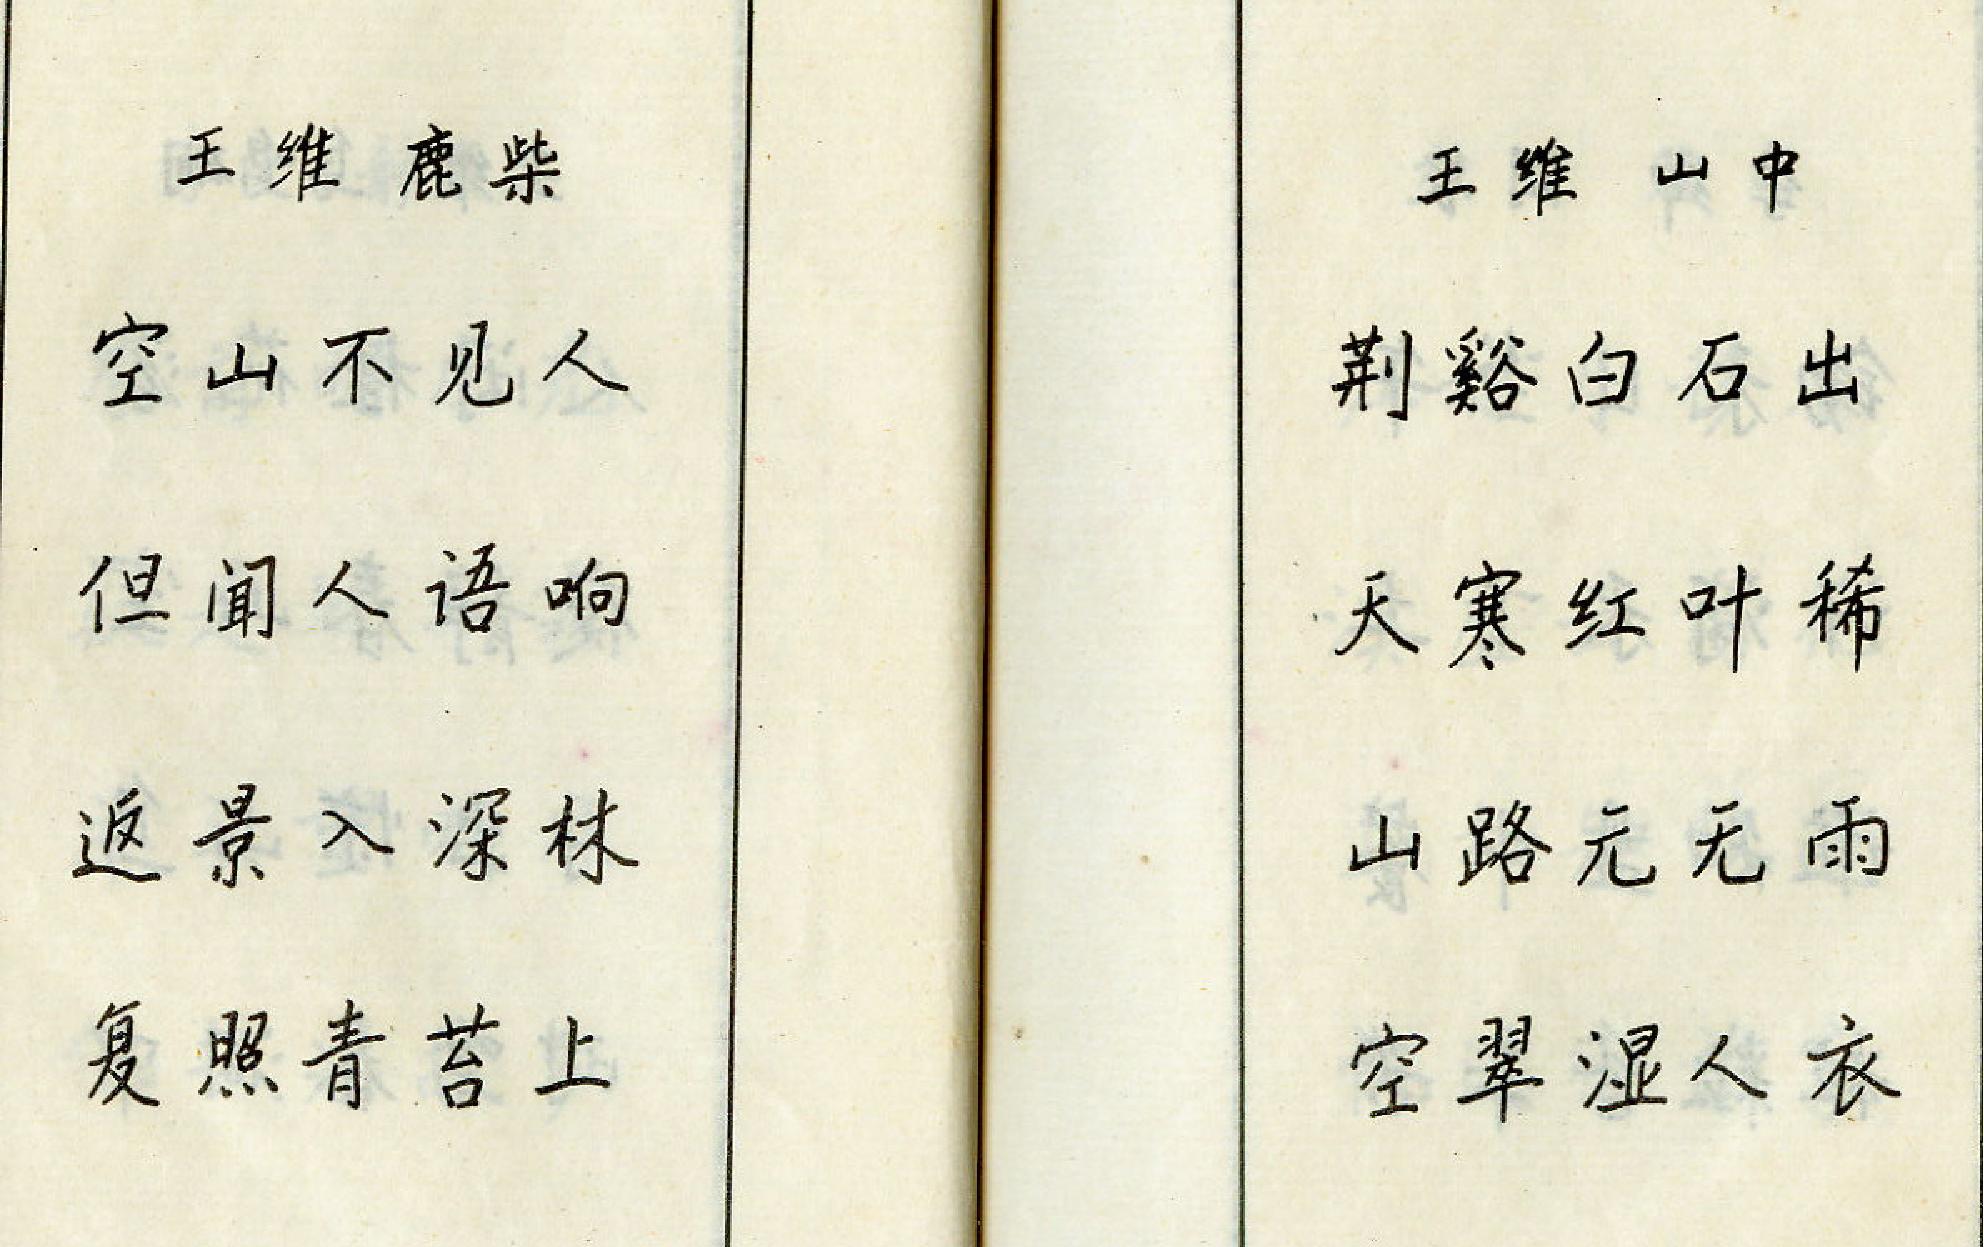 王维 鹿柴
空山不见人
但闻人语响
返景入深林
复照青苔上
王维 山中
荆谿白石出
天寒红叶稀
山路元无雨
空翠湿人衣